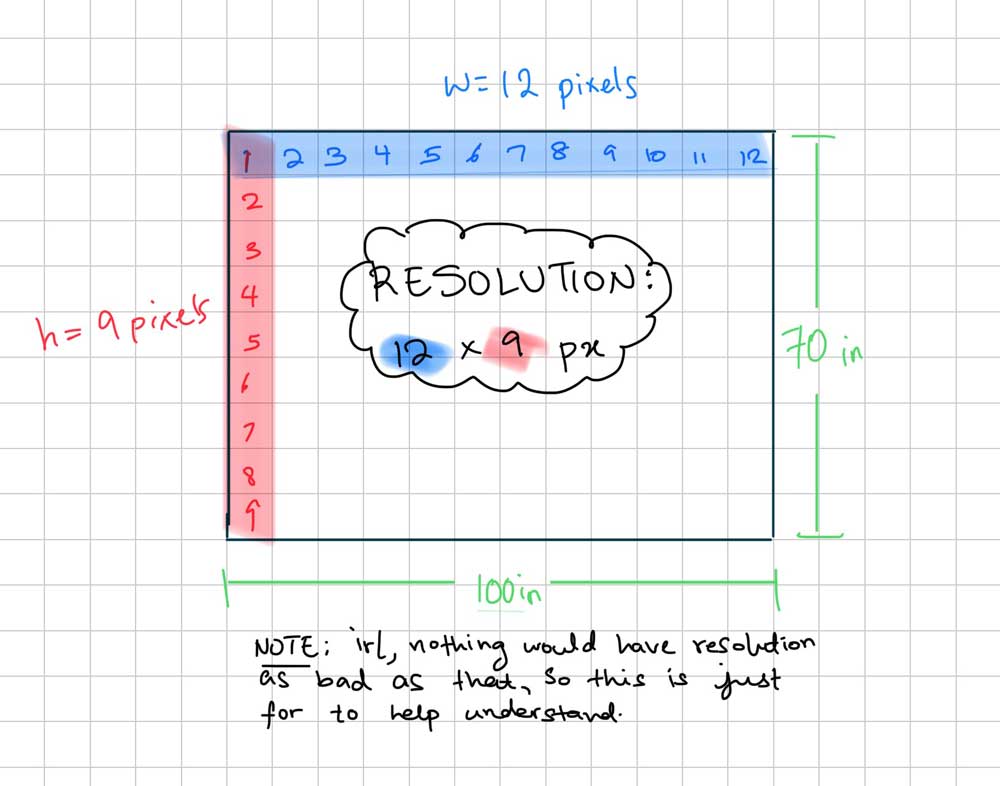 w = 12 pixels
1 2 3 4 5 6 7 8 9 10 11 12
2
3
4
5
6
7
8
9
h = 9 pixels
RESOLUTION:
12 x 9 px
70 in
100in
NOTE: irl, nothing would have resolution
as bad as that, so this is just
for to help understand.